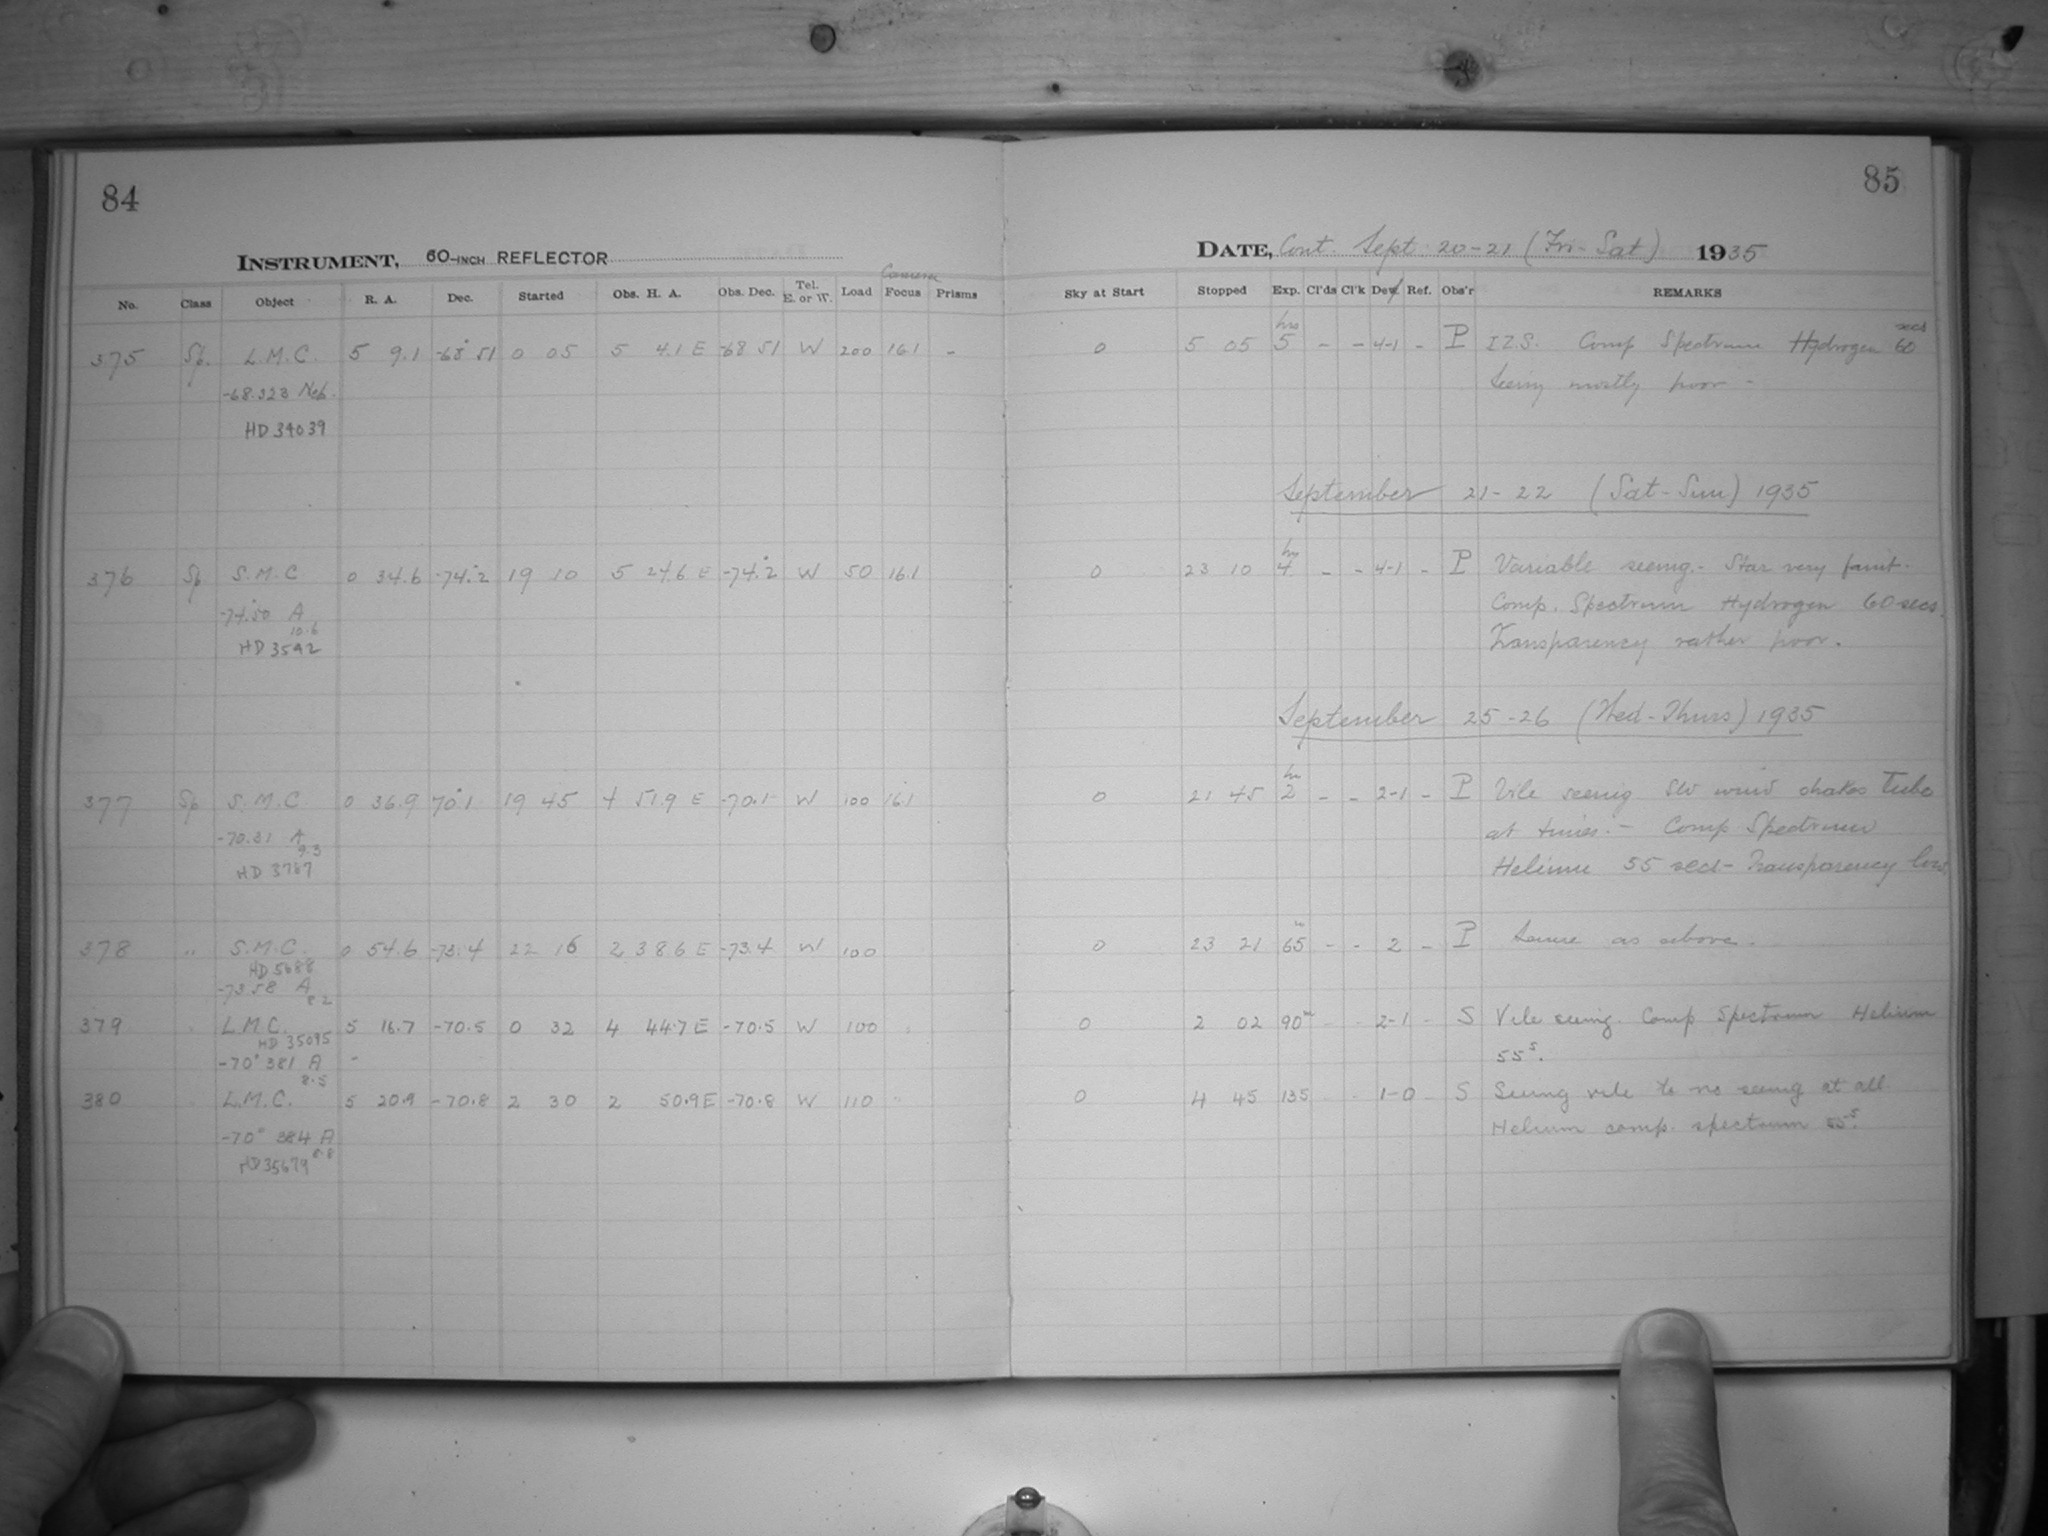 84
INSTRUMENT, 60-INCH REFLECTOR
No. Class Object R. A. Dec. Started Obs. H. A. Obs. Dec. Tel. E. or W. Load Camera Focus Prisms
375 Sp. L.M.C. 5 9.1 -68° 51 0 05 5 4.1 E -68 51 W 200 16.1 -
-68.323 Neb.
HD 34039
376 Sp S.M.C 0 34.6 -74.°2 19 10 5 24.6 E -74.°2 W 50 16.1
-74.°50 A
10.6
HD 3592
377 Sp S.M.C. 0 36.9 70.°1 19 45 4 51.9 E -70.1 W 100 16.1
-70.31 A
9.3
HD 3767
378 " S.M.C. 0 54.6 -73.4 22 16 2 38.6 E -73.4 W 100
HD 5688
-73 58 A
8.2
379 L.M.C. 5 16.7 -70.5 0 32 4 44.7 E -70.5 W 100
HD 35095
-70° 381 A
8.5
380 L.M.C. 5 20.9 -70.8 2 30 2 50.9 E -70.8 W 110 "
-70° 384 A
8.8
HD 35679
85
DATE, Cont. Sept 20-21 (Fri-Sat) 1935
Sky at Start Stopped Exp. Cl'ds Cl'k Dew Ref. Obs'r REMARKS
0 5 05 5 hrs - - 4-1 - P I.Z.S. Comp Spectrum Hydrogen 60 secs
Seeing mostly poor -
September 21-22 (Sat-Sun) 1935
0 23 10 4 hrs - - 4-1 - P Variable seeing.- Star very faint.
Comp. Spectrum Hydrogen 60 secs.
Transparency rather poor.
September 25-26 (Wed-Thurs) 1935
0 21 45 2 hr - - 2-1 - P Vile seeing SW wind shakes tube
at times.- Comp Spectrum
Helium 55 secs- Transparency low.
0 23 21 65 m - - 2 - P Same as above.
0 2 02 90 m - - 2-1 - S Vile seeing. Comp Spectrum Helium
55 s.
0 4 45 135 - - 1-0 - S Seeing vile to no seeing at all
Helium comp. spectrum 55 s.